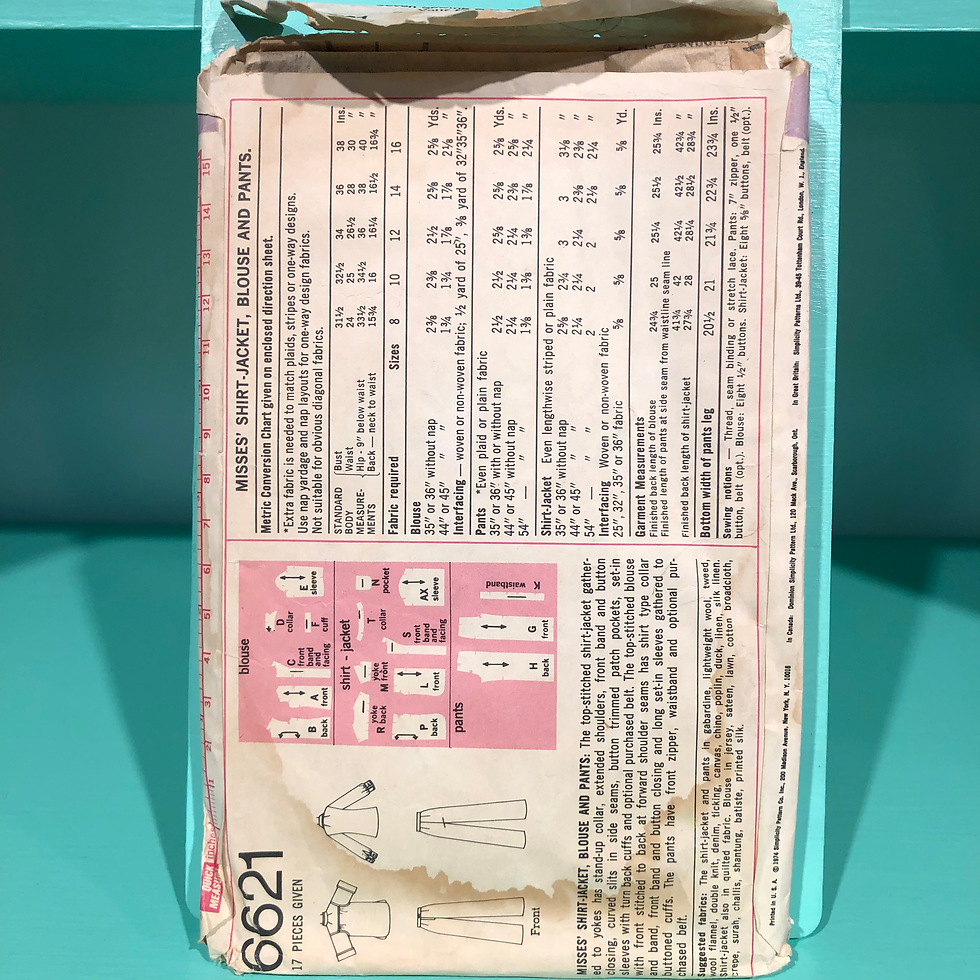 QUICK inches
MEAS
1 2 3 4 5 6 7 8 9 10 11 12 13 14 15
6621
17 PIECES GIVEN
Front
blouse
B back
A front
C front band and facing
D collar
F cuff
E sleeve
shirt - jacket
R yoke back
M yoke front
T collar
N pocket
P back
L front
S front band and facing
AX sleeve
pants
H back
G front
K waistband
MISSES' SHIRT-JACKET, BLOUSE AND PANTS: The top-stitched shirt-jacket gather-
ed to yokes has stand-up collar, extended shoulders, front band and button
closing, curved slits in side seams, button trimmed patch pockets, set-in
sleeves with turn back cuffs and optional purchased belt. The top-stitched blouse
with front stitched to back at forward shoulder seams has shirt type collar
and band, front band and button closing and long set-in sleeves gathered to
buttoned cuffs. The pants have front zipper, waistband and optional pur-
chased belt.
Suggested fabrics: The shirt-jacket and pants in gabardine, lightweight wool, tweed,
wool flannel, double knit, denim, ticking, canvas, chino, poplin, duck, linen, silk linen.
Shirt-jacket also in quilted fabric. Blouse in jersey, sateen, lawn, cotton broadcloth,
crepe, surah, challis, shantung, batiste, printed silk.
MISSES' SHIRT-JACKET, BLOUSE AND PANTS.
Metric Conversion Chart given on enclosed direction sheet.
*Extra fabric is needed to match plaids, stripes or one-way designs.
Use nap yardage and nap layouts for one-way design fabrics.
Not suitable for obvious diagonal fabrics.
STANDARD Bust 31½ 32½ 34 36 38 Ins.
BODY Waist 24 25 26½ 28 30 "
MEASURE- Hip - 9" below waist 33½ 34½ 36 38 40 "
MENTS Back — neck to waist 15¾ 16 16¼ 16½ 16¾ "
Fabric required Sizes 8 10 12 14 16
Blouse
35" or 36" without nap 2⅜ 2⅜ 2½ 2⅝ 2⅝ Yds.
44" or 45" " " 1¾ 1¾ 1⅞ 1⅞ 2⅛ "
Interfacing — woven or non-woven fabric; ½ yard of 25", ⅜ yard of 32"35"36".
Pants *Even plaid or plain fabric
35" or 36" with or without nap 2½ 2½ 2⅝ 2⅝ 2⅝ Yds.
44" or 45" without nap 2¼ 2¼ 2¼ 2⅜ 2⅝ "
54" — " " 1⅜ 1⅜ 1⅜ 1⅞ 2¼ "
Shirt-Jacket Even lengthwise striped or plain fabric
35" or 36" without nap 2⅝ 2¾ 3 3 3⅛ "
44" or 45" " " 2¼ 2¼ 2¼ 2⅜ 2⅜ "
54" " " 2 2 2 2⅛ 2¼ "
Interfacing Woven or non-woven fabric
25", 32", 35" or 36" fabric ⅝ ⅝ ⅝ ⅝ ⅝ Yd.
Garment Measurements
Finished back length of blouse 24¾ 25 25¼ 25½ 25¾ Ins.
Finished length of pants at side seam from waistline seam line
41¾ 42 42¼ 42½ 42¾ "
Finished back length of shirt-jacket 27¾ 28 28¼ 28½ 28¾ "
Bottom width of pants leg 20½ 21 21¾ 22¾ 23¾ Ins.
Sewing notions — Thread, seam binding or stretch lace. Pants: 7" zipper, one ½"
button, belt (opt.). Blouse: Eight ½" buttons. Shirt-Jacket: Eight ⅝" buttons, belt (opt.).
Printed in U.S.A. © 1974 Simplicity Pattern Co. Inc., 200 Madison Avenue, New York, N.Y. 10016 In Canada: Dominion Simplicity Pattern Ltd., 120 Mack Ave., Scarborough, Ont. In Great Britain: Simplicity Patterns Ltd., 39-45 Tottenham Court Rd., London, W. 1., England.